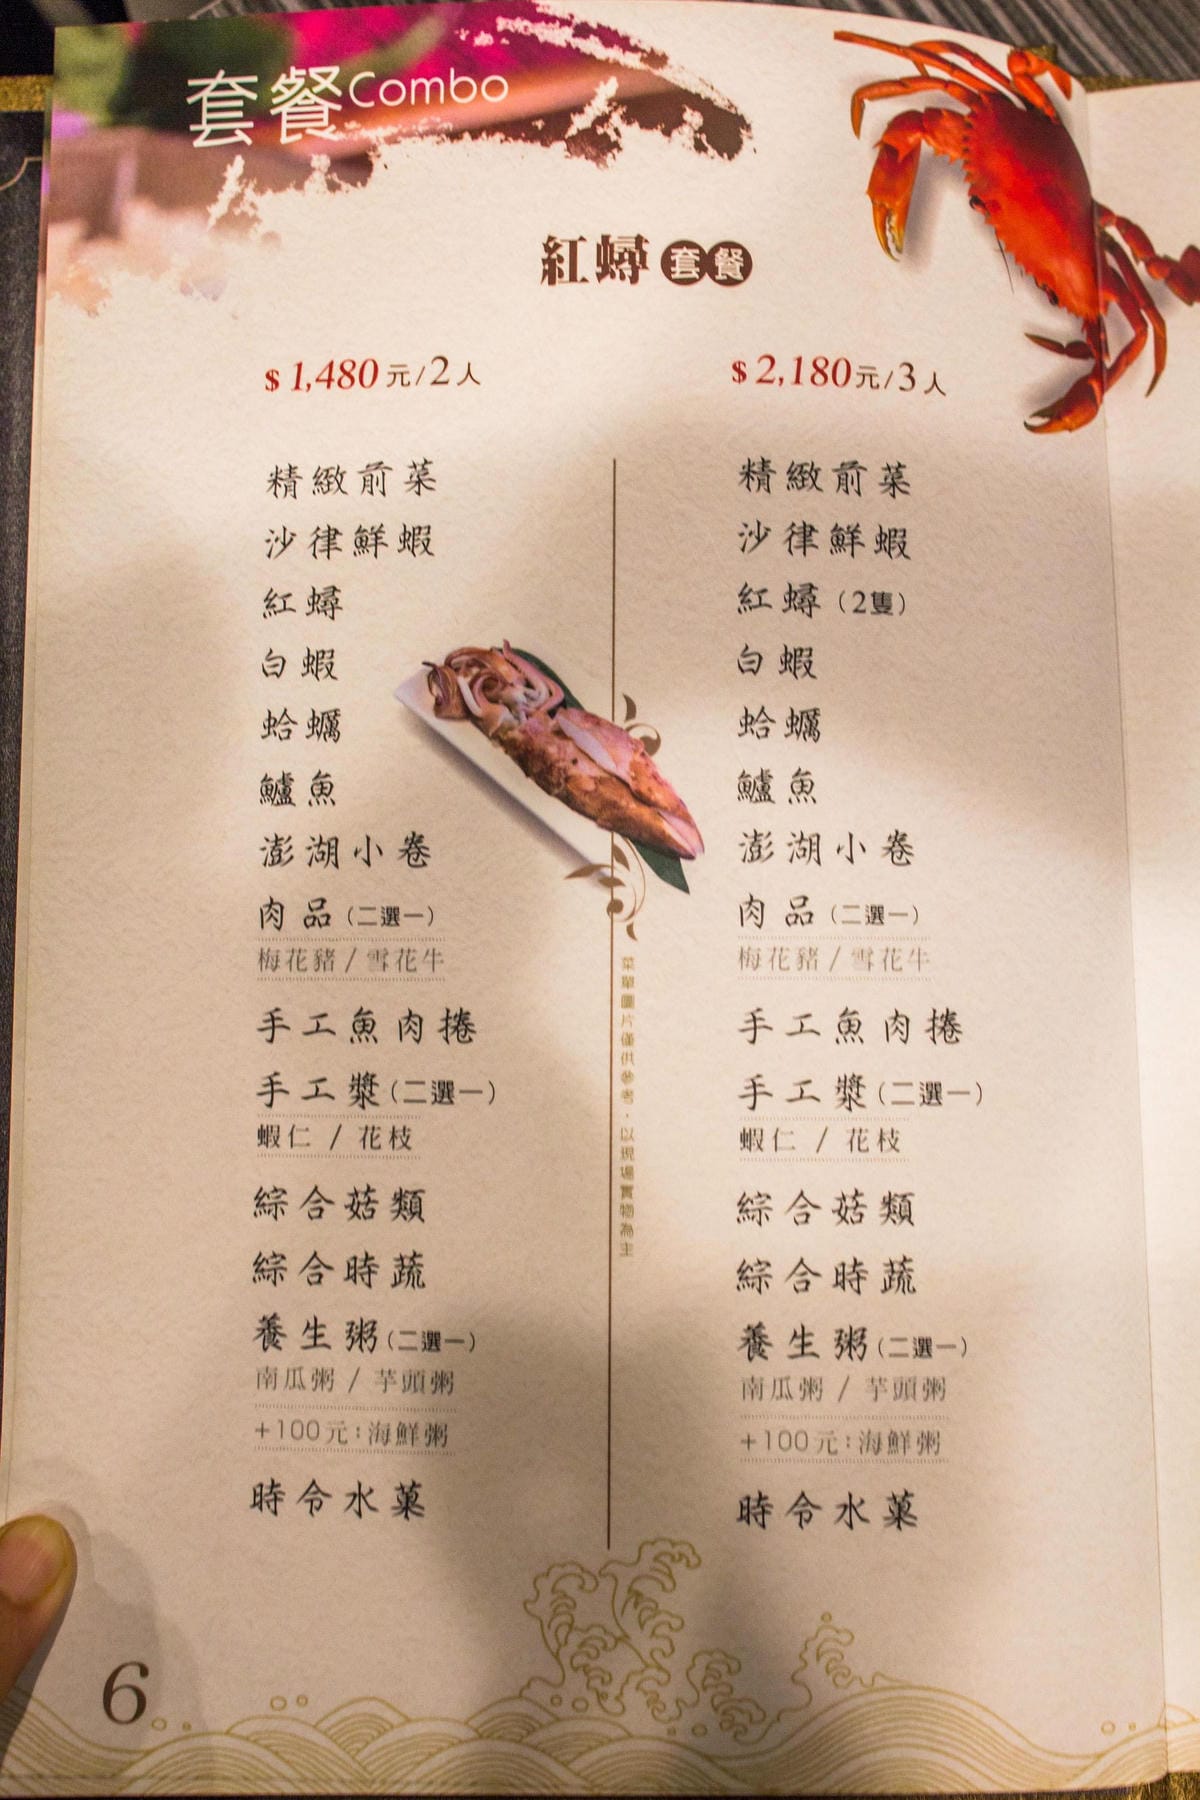 套餐Combo
紅蟳套餐
$ 1,480元/2人
精緻前菜
沙律鮮蝦
紅蟳
白蝦
蛤蠣
鱸魚
澎湖小卷
肉品(二選一)
梅花豬 / 雪花牛
手工魚肉捲
手工漿(二選一)
蝦仁 / 花枝
綜合菇類
綜合時蔬
養生粥(二選一)
南瓜粥 / 芋頭粥
+100元:海鮮粥
時令水菓
$ 2,180元/3人
精緻前菜
沙律鮮蝦
紅蟳(2隻)
白蝦
蛤蠣
鱸魚
澎湖小卷
肉品(二選一)
梅花豬 / 雪花牛
手工魚肉捲
手工漿(二選一)
蝦仁 / 花枝
綜合菇類
綜合時蔬
養生粥(二選一)
南瓜粥 / 芋頭粥
+100元:海鮮粥
時令水菓
菜單圖片僅供參考，以現場實物為主
6